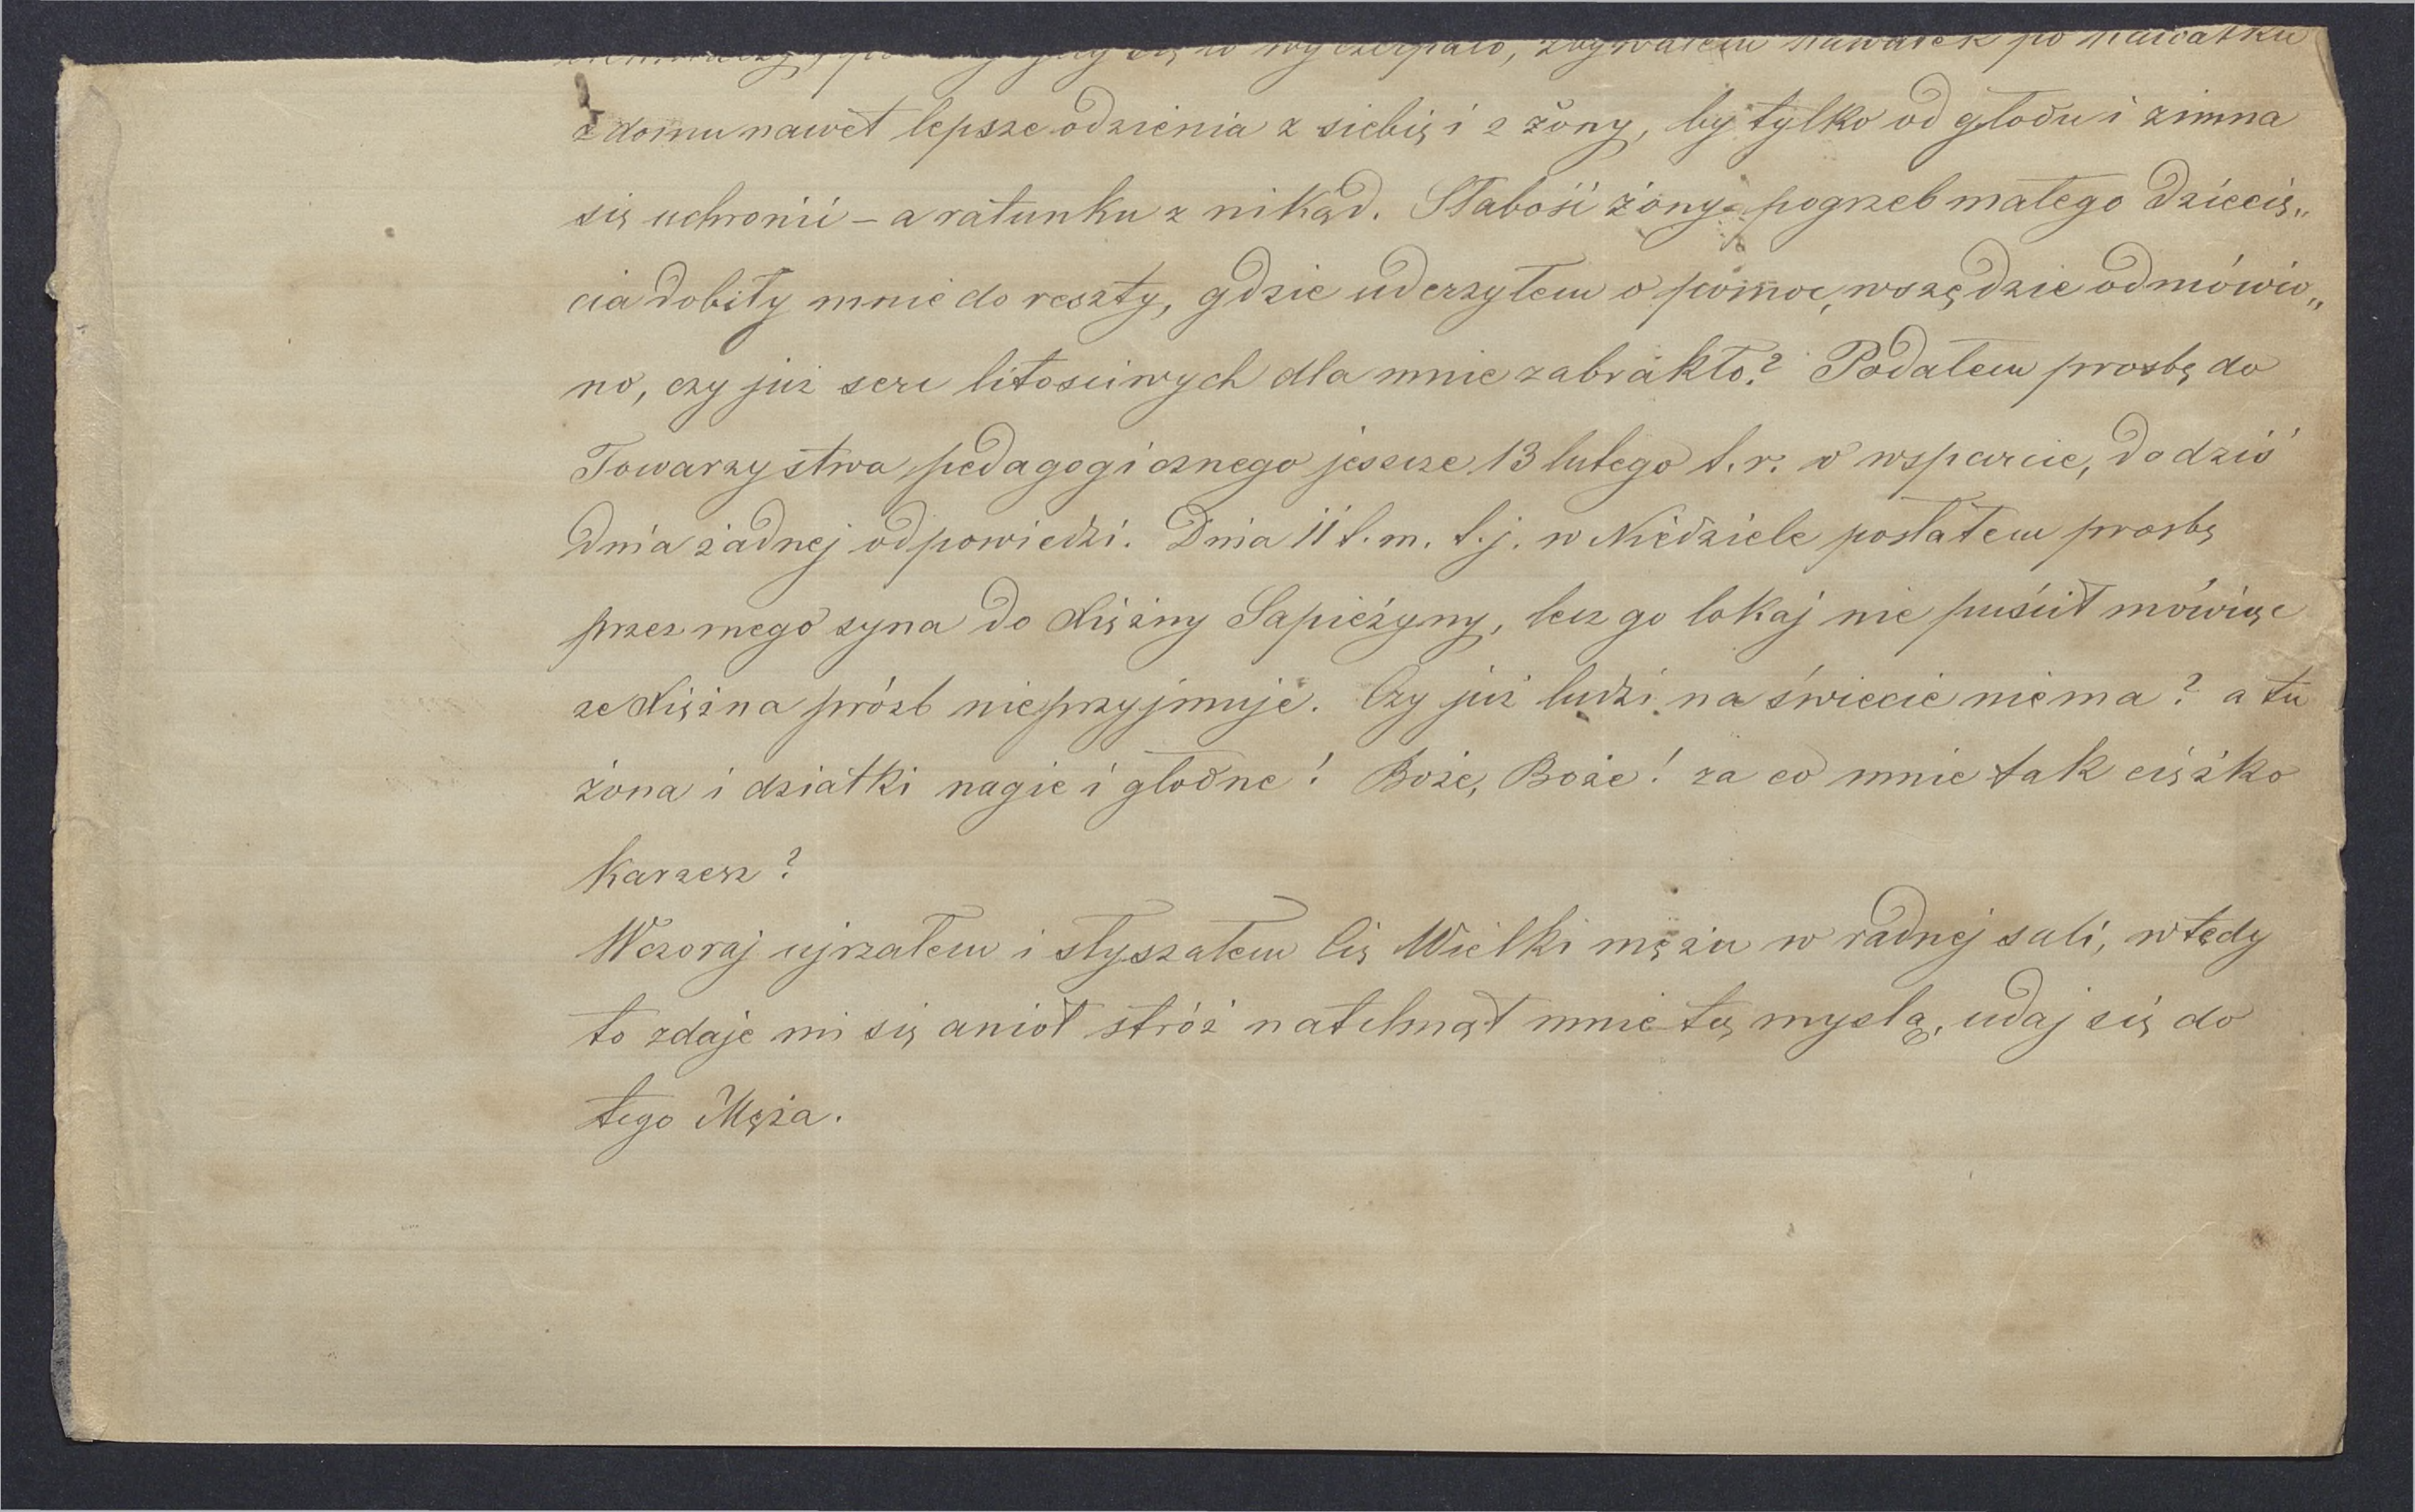 się to wyczerpało, zbywałem kawałek po kawałku
z domu nawet lepsze odzienia z siebię i z żony, by tylko od głodu i zimna
się uchronić – a ratunku z nikąd. Słabość żony pogrzeb małego dziecię„
cia dobiły mnie do reszty, gdzie uderzyłem o pomoc, wszędzie odmówio„
no, czy już serc litosciwych dla mnie zabrakło? Podałem prosbę do
Towarzystwa pedagogicznego jeszcze 13 lutego t. r. o wsparcie, do dziś
dnia żadnej odpowiedzi. Dnia 11 t. m. t. j. w Niedziele posłałem prosbę
przez mego syna do Xiężny Sapieżyny, lecz go lokaj nie puścił mówiąc
ze Xiężna prózb nieprzyjmuje. Czy już ludzi na świecie niema? a tu
żona i dziatki nagie i głodne! Boże, Boże! za co mnie tak ciężko
karzesz?
Wczoraj ujrzałem i słyszałem Cię Wielki mężu w radnej sali, wtedy
to zdaje mi się anioł stróż natchnął mnie tą mysłą, udaj się do
tego Męża.